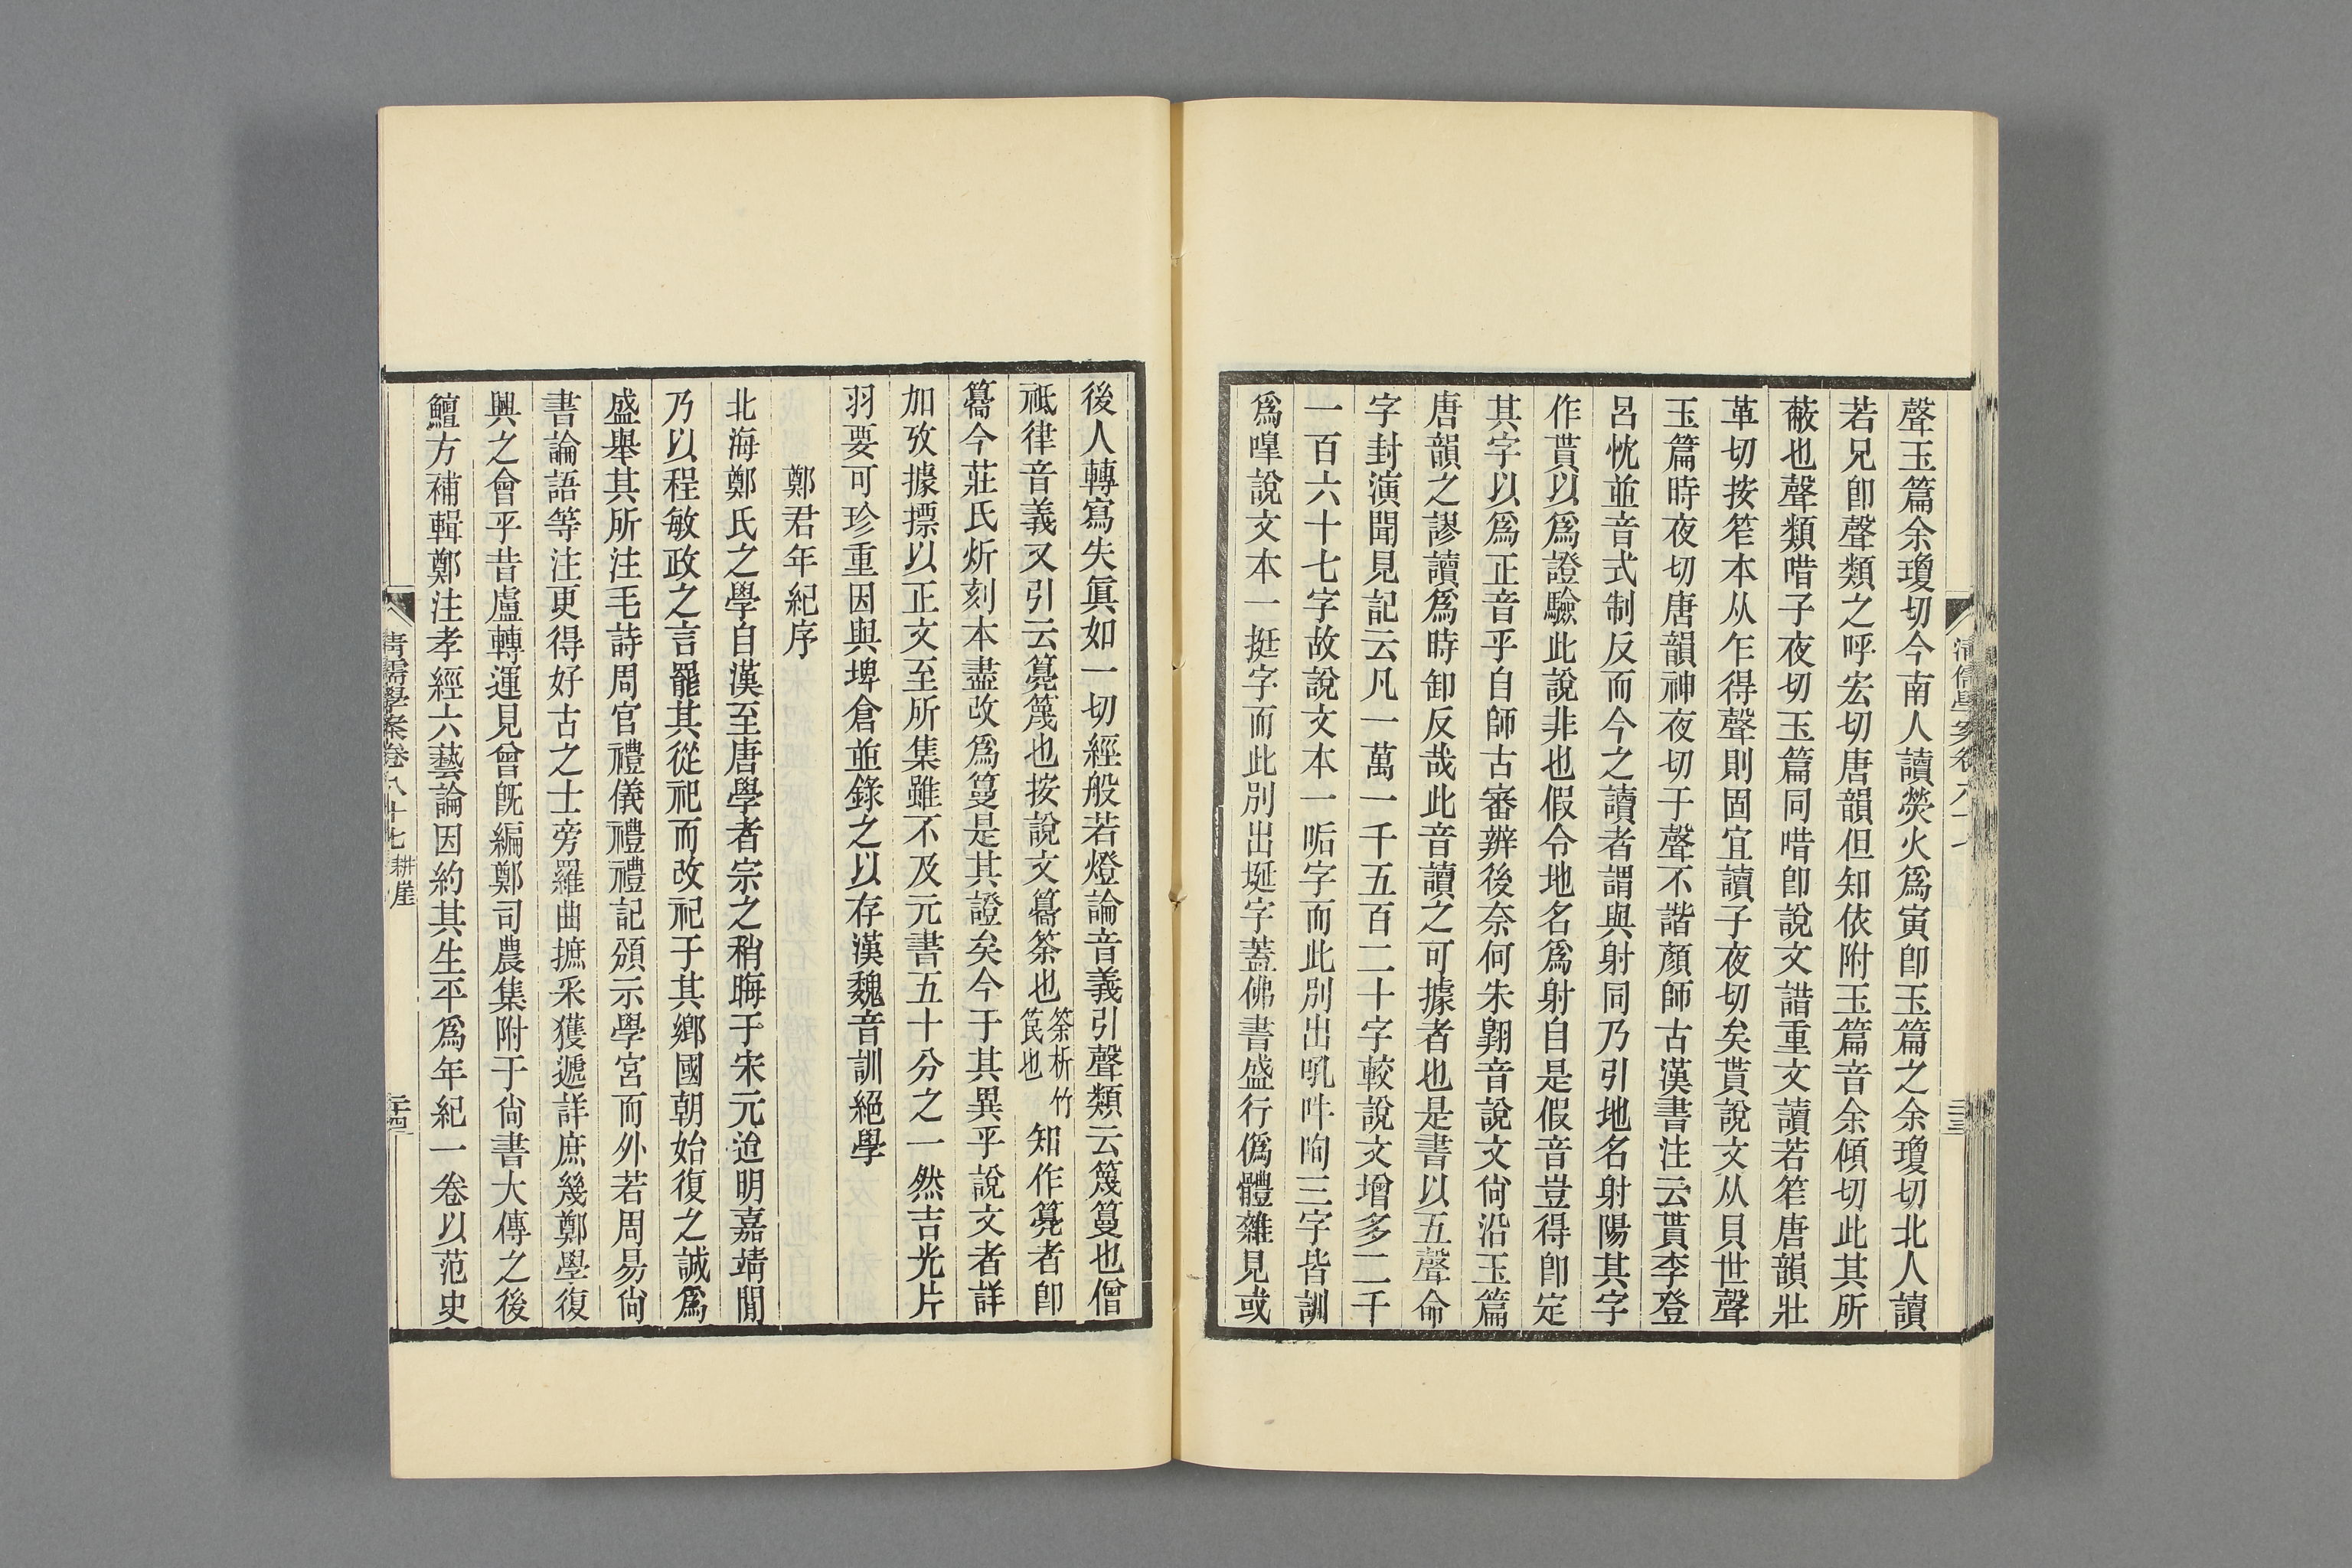 聲玉篇余瓊切今南人讀熒火爲寅卽玉篇之余瓊切北人讀
若兄卽聲類之呼宏切唐韻但知依附玉篇音余傾切此其所
蔽也聲類唶子夜切玉篇同唶卽說文諎重文讀若笮唐韻壯
革切按笮本从乍得聲則固宜讀子夜切矣貰說文从貝世聲
玉篇時夜切唐韻神夜切于聲不諧顏師古漢書注云貰李登
呂忱並音式制反而今之讀者謂與射同乃引地名射陽其字
作貰以爲證驗此說非也假令地名爲射自是假音豈得卽定
其字以爲正音乎自師古審辨後奈何朱翺音說文尙沿玉篇
唐韻之謬讀爲時卸反哉此音讀之可據者也是書以五聲命
字封演聞見記云凡一萬一千五百二十字較說文增多二千
一百六十七字故說文本一垢字而此別出吼吽呴三字皆訓
爲嘷說文本一挻字而此別出埏字蓋佛書盛行僞體雜見或
清儒學案卷八十七
後人轉寫失眞如一切經般若燈論音義引聲類云篾䈅也僧
祗律音義又引云䉂篾也按說文䉛筡也筡析竹笢也知作䉂者卽
䉛今莊氏炘刻本盡改爲䈅是其證矣今于其異乎說文者詳
加攷據摽以正文至所集雖不及元書五十分之一然吉光片
羽要可珍重因與埤倉並錄之以存漢魏音訓絕學
鄭君年紀序
北海鄭氏之學自漢至唐學者宗之稍晦于宋元迨明嘉靖閒
乃以程敏政之言罷其從祀而改祀于其鄉國朝始復之誠爲
盛舉其所注毛詩周官禮儀禮禮記頒示學宮而外若周易尙
書論語等注更得好古之士旁羅曲摭采獲遞詳庶幾鄭學復
興之會乎昔盧轉運見曾旣編鄭司農集附于尙書大傳之後
鱣方補輯鄭注孝經六藝論因約其生平爲年紀一卷以范史
清儒學案卷八十七 耕崖